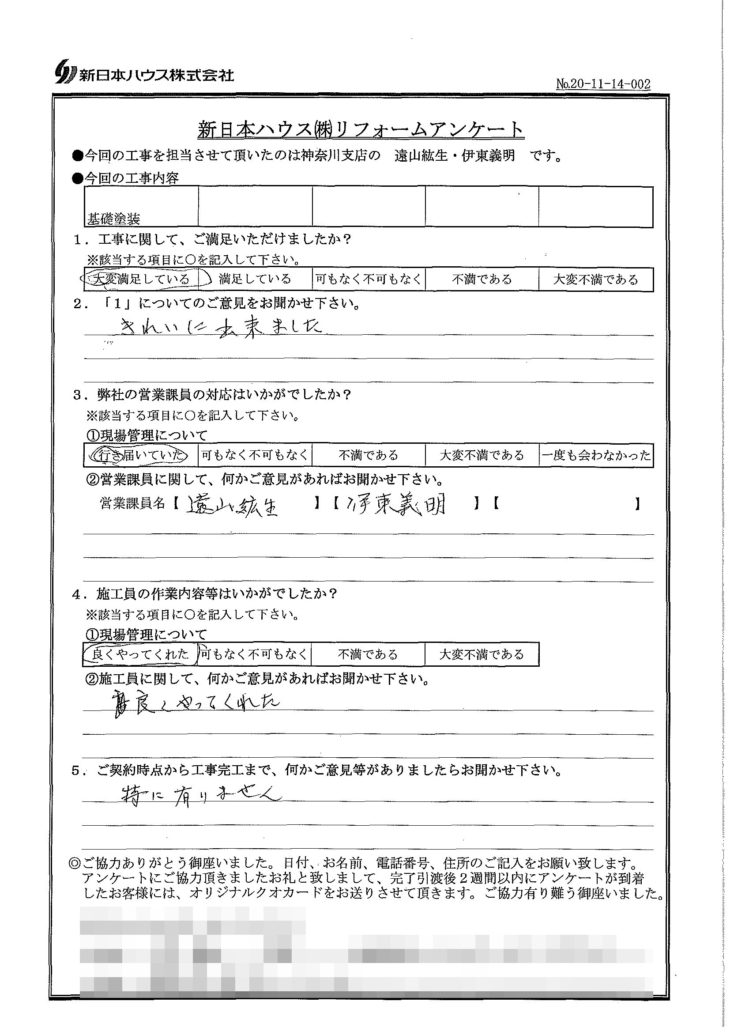 新日本ハウス株式会社
№20-11-14-002
新日本ハウス㈱リフォームアンケート
●今回の工事を担当させて頂いたのは神奈川支店の　遠山紘生・伊東義明　です。
●今回の工事内容
基礎塗装
１．工事に関して、ご満足いただけましたか？
※該当する項目に〇を記入して下さい。
大変満足している　満足している　可もなく不可もなく　不満である　大変不満である
２．「１」についてのご意見をお聞かせ下さい。
きれいに出来ました
３．弊社の営業課員の対応はいかがでしたか？
※該当する項目に〇を記入して下さい。
①現場管理について
行き届いていた　可もなく不可もなく　不満である　大変不満である　一度も会わなかった
②営業課員に関して、何かご意見があればお聞かせ下さい。
営業課員名【 遠山紘生 】【 伊東義明 】【 】
４．施工員の作業内容等はいかがでしたか？
※該当する項目に〇を記入して下さい。
①現場管理について
良くやってくれた　可もなく不可もなく　不満である　大変不満である
②施工員に関して、何かご意見があればお聞かせ下さい。
良くやってくれた
５．ご契約時点から工事完工まで、何かご意見等がありましたらお聞かせ下さい。
特に有りません
◎ご協力ありがとう御座いました。日付、お名前、電話番号、住所のご記入をお願い致します。
アンケートにご協力頂きましたお礼と致しまして、完了引渡後２週間以内にアンケートが到着
したお客様には、オリジナルクオカードをお送りさせて頂きます。ご協力有り難う御座いました。